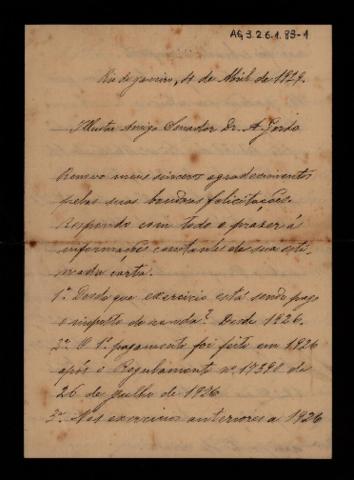 AG 3.2.6.1.83-1
Rio de janeiro, 4 de Abril de 1929.
Illustre Amigo Senador Dr. A. Gordo
Renovo meus sinceros agradecimentos
pelas suas bondosas felicitações.
Respondo com todo o prazer á
informações constante de sua esti-
mada carta.
1º. Desde que exercicio está sendo pago
o imposto de renda? Desde 1926.
2º. O 1º. pagamento foi feito em 1926
após o Regulamento nº 17390 de
26 de julho de 1926
3º. Nos exercicios anteriores a 1926